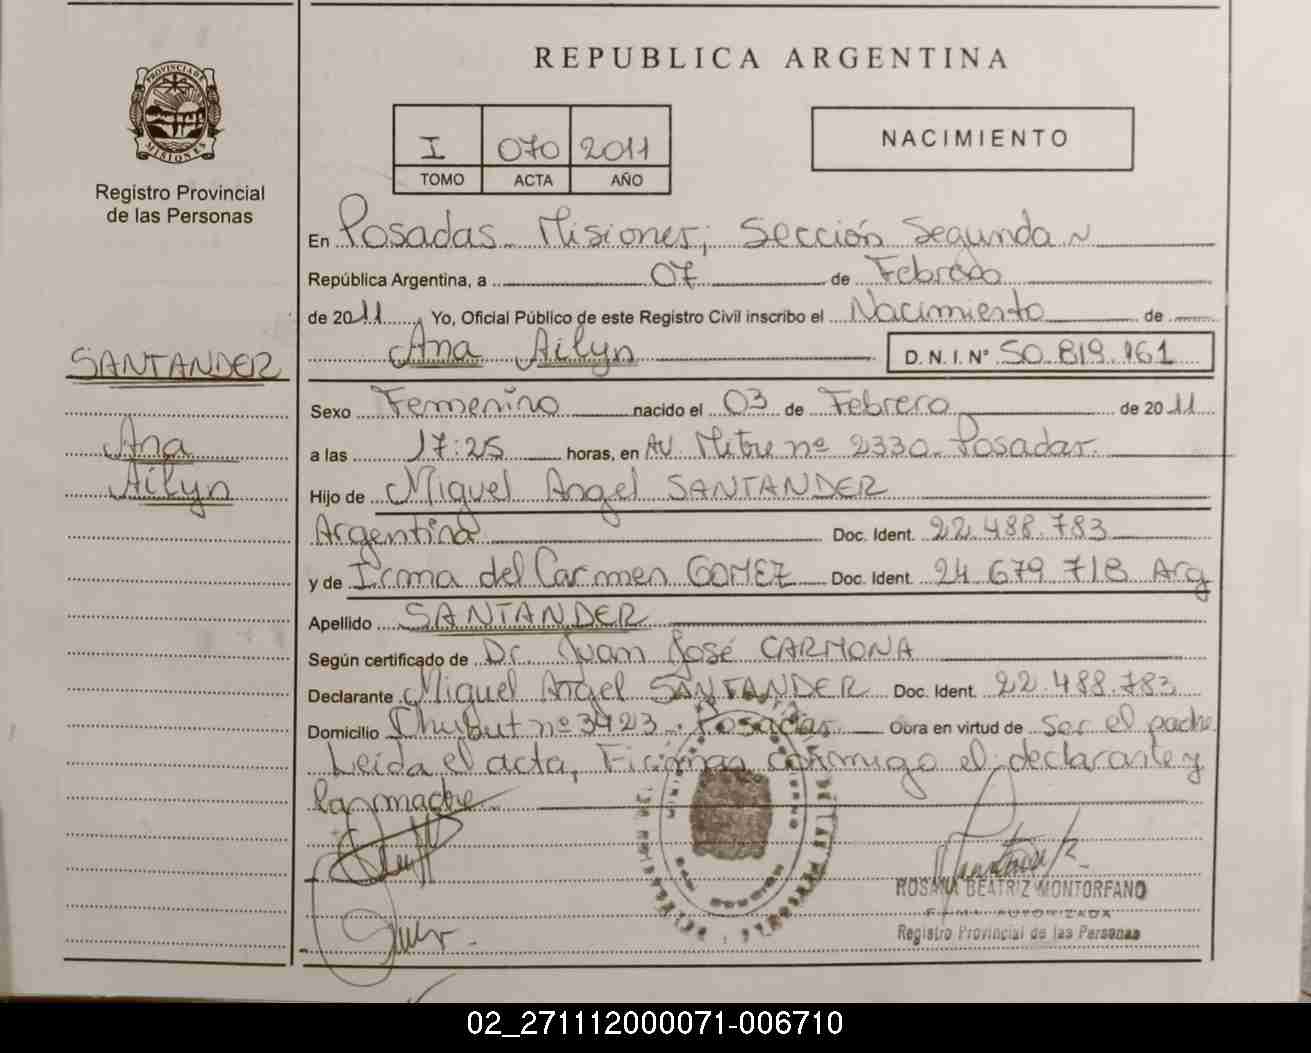 REPUBLICA ARGENTINA
PROVINCIA DE
MISIONES
Registro Provincial
de las Personas
I 070 2011
TOMO ACTA AÑO
NACIMIENTO
En Posadas Misiones, Sección Segunda
República Argentina, a 07 de Febrero
de 2011 Yo, Oficial Público de este Registro Civil inscribo el Nacimiento de
Ana Ailyn D.N.I.Nº 50.819.161
SANTANDER
Ana
Ailyn
Sexo Femenino nacido el 03 de Febrero de 2011
a las 17:25 horas, en Av. Mitre nº 2330. Posadas.
Hijo de Miguel Angel SANTANDER
Argentina Doc. Ident. 22.488.783
y de Irma del Carmen GOMEZ Doc. Ident. 24 679 718 Arg
Apellido SANTANDER
Según certificado de Dr. Juan José CARMONA
Declarante Miguel Angel SANTANDER Doc. Ident. 22.488.783
Domicilio Chubut nº 3423. Posadas Obra en virtud de ser el padre
Leída el acta, Firman conmigo el declarante y
la madre
ROSANA BEATRIZ MONTORFANO
FIRMA AUTORIZADA
Registro Provincial de las Personas
02_271112000071-006710